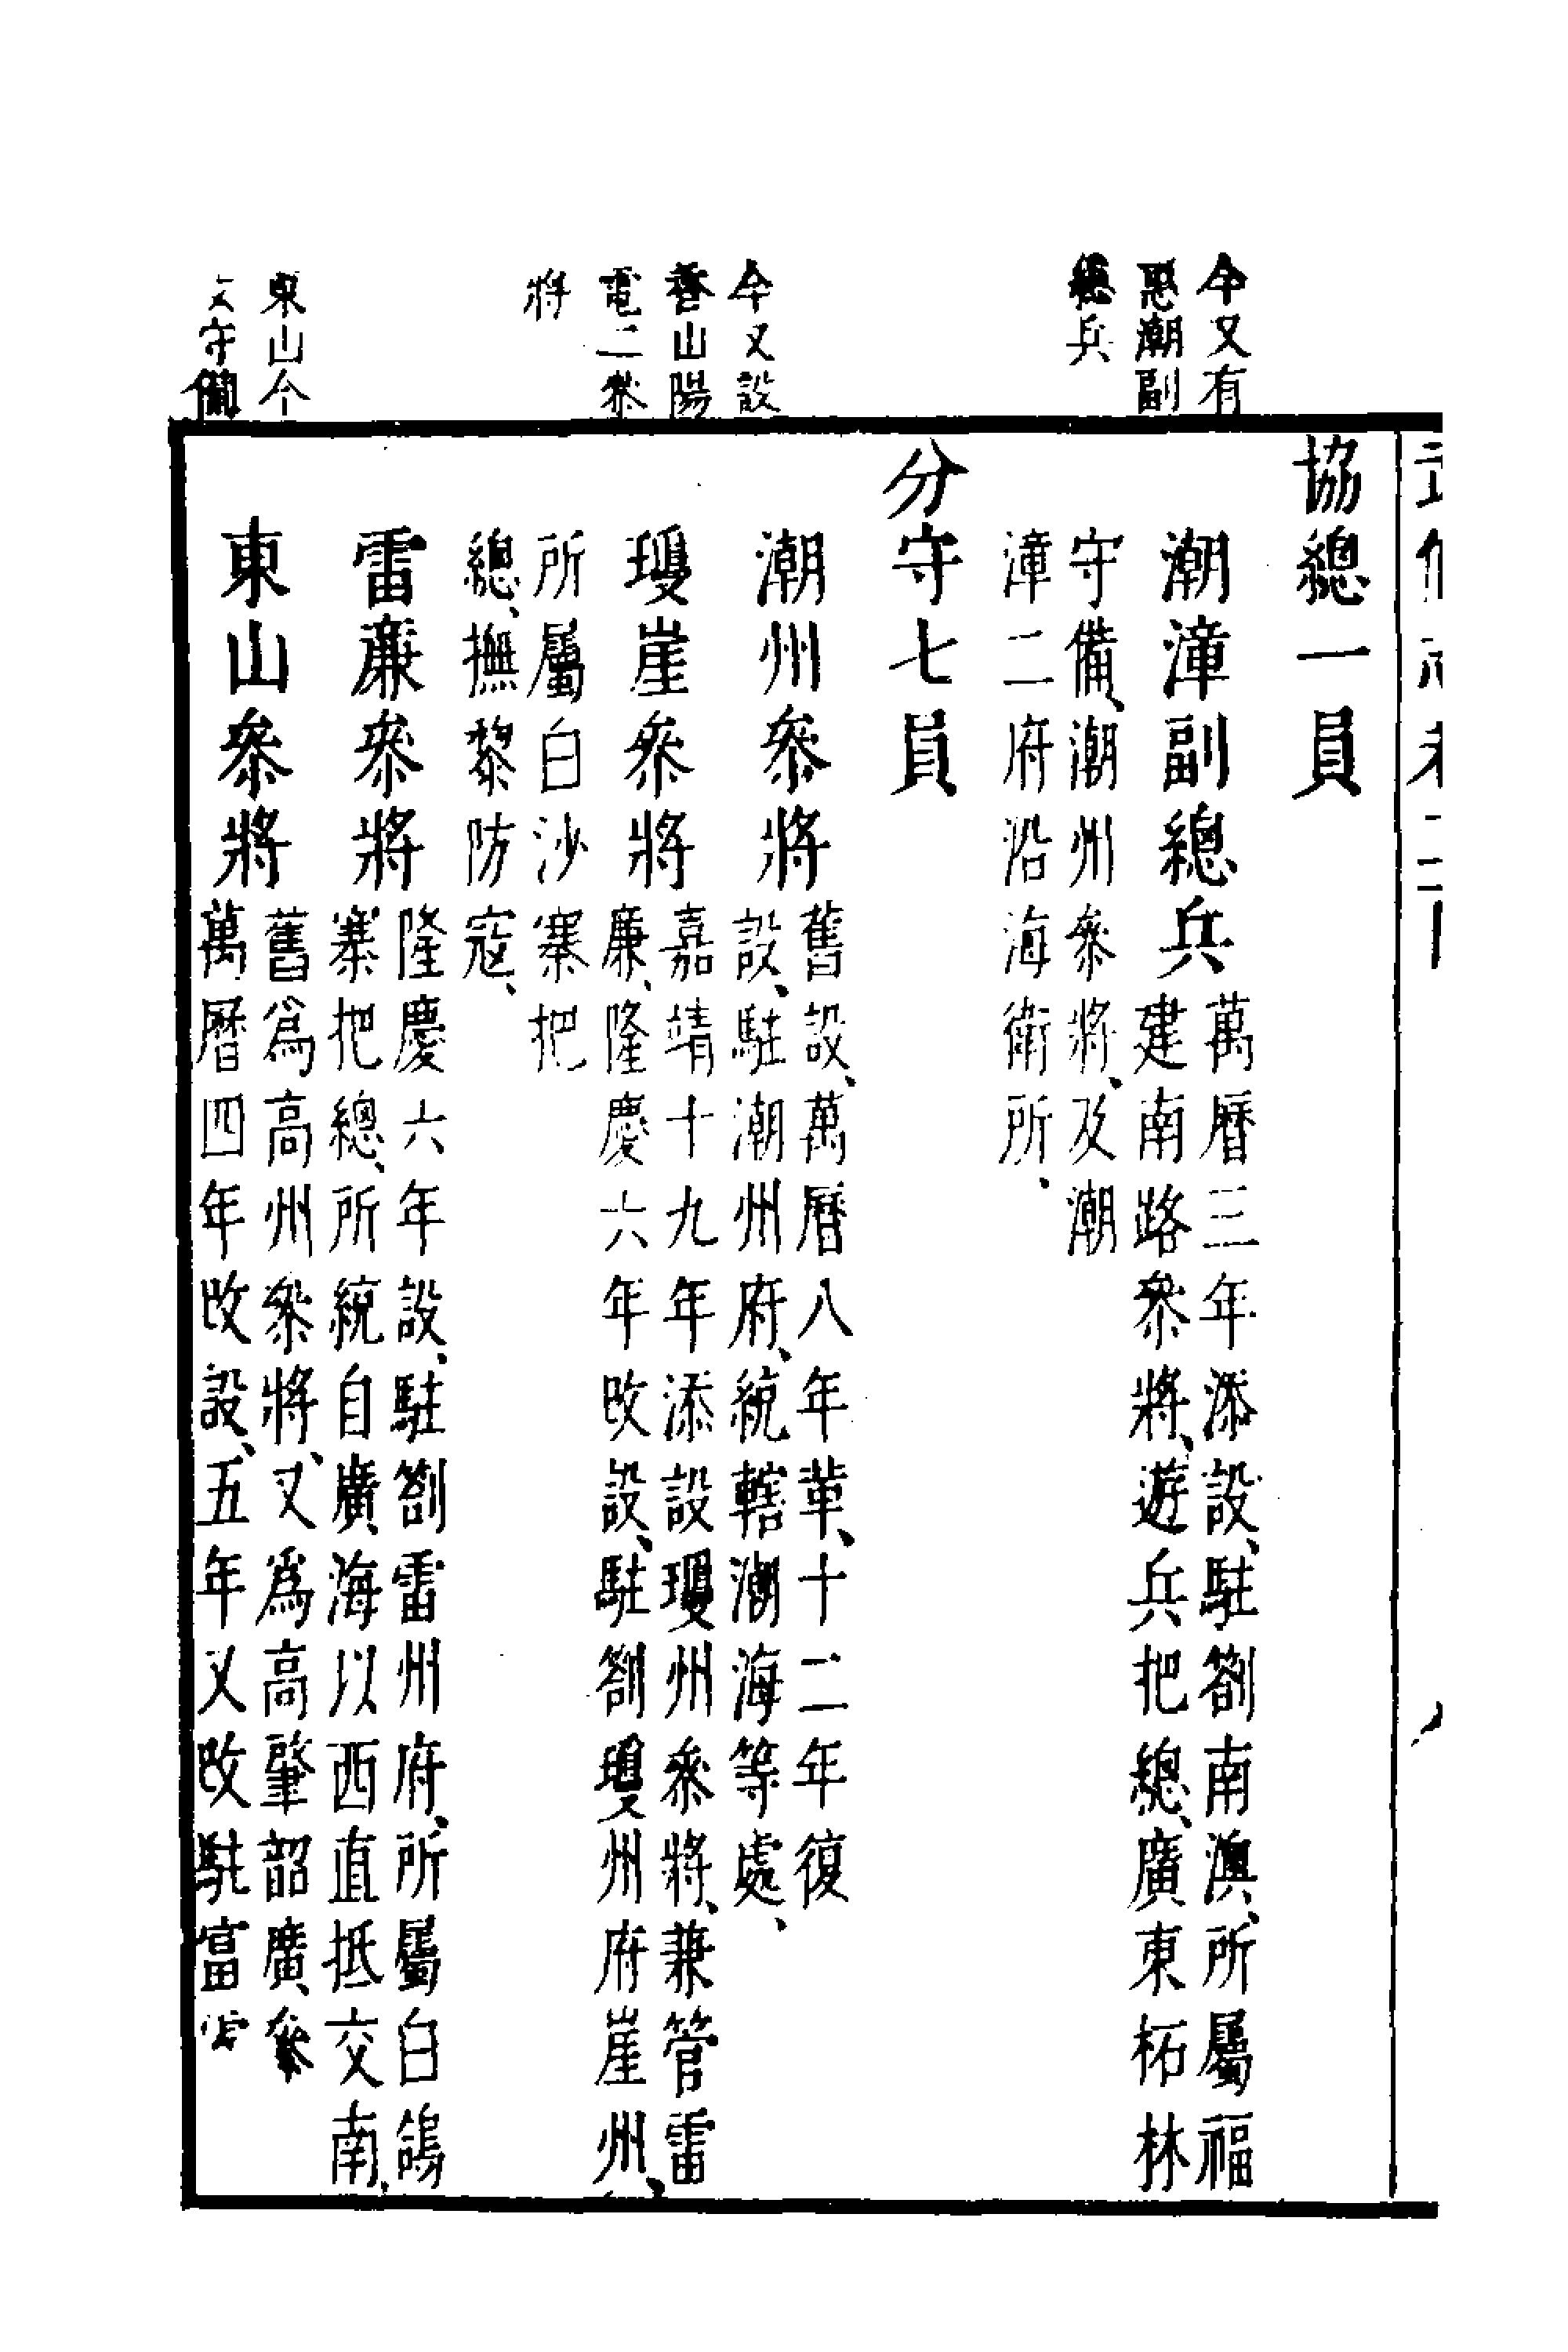 今又有
惠潮副
總兵
今又設
香山陽
電二參
將
東山今
文守備
協總一員
潮漳副總兵
萬曆三年添設、駐劄南澳、所屬福
建南路參將、遊兵把總、廣東柘林
守備、潮州參將、及潮
漳二府沿海衛所、
分守七員
潮州參將
舊設、萬曆八年革、十二年復
設、駐潮州府、統轄潮海等處、
瓊崖參將
嘉靖十九年添設瓊州參將、兼管雷
廉、隆慶六年改設、駐劄瓊州府崖州、
所屬白沙寨把
總、撫黎防寇、
雷廉參將
隆慶六年設、駐劄雷州府、所屬白鴿
寨把總、所統自廣海以西直抵交南、
東山參將
舊爲高州參將、又爲高肇韶廣參
萬曆四年改設、五年又改駐富